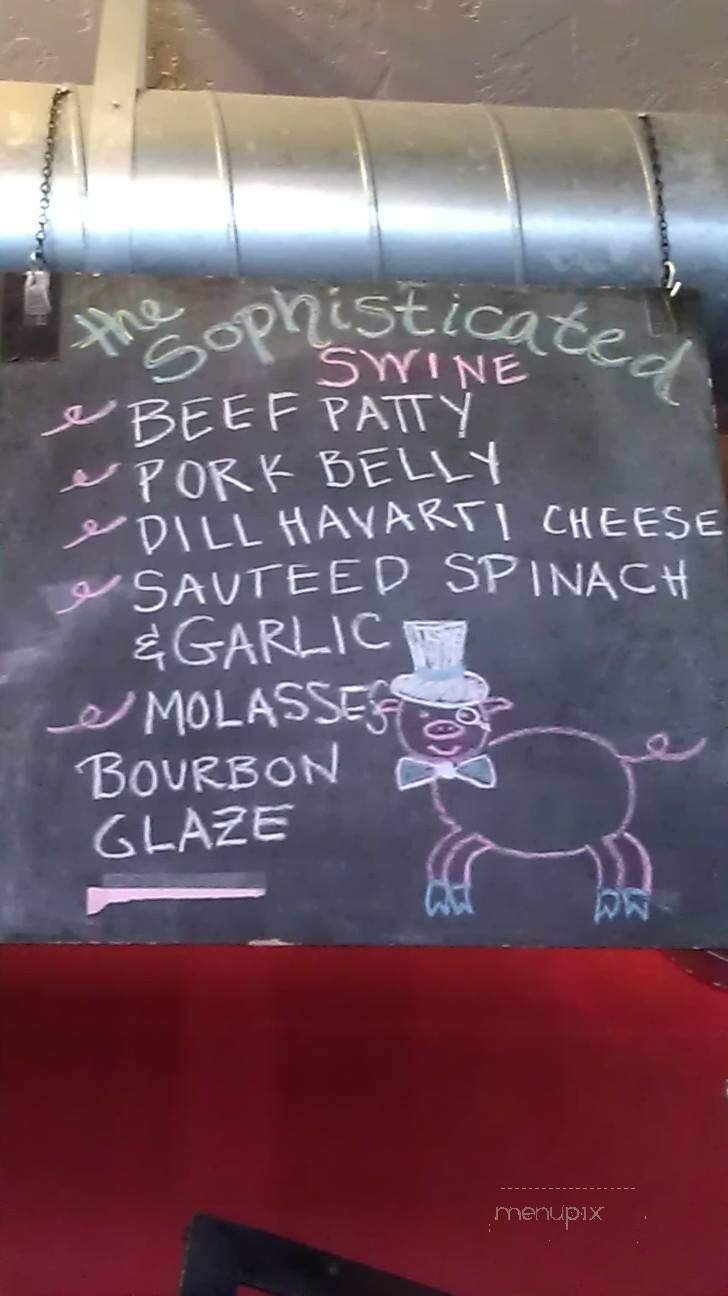 the Sophisticated
SWINE
BEEF PATTY
PORK BELLY
DILL HAVARTI CHEESE
SAUTEED SPINACH
& GARLIC
MOLASSES
BOURBON
GLAZE
menupix